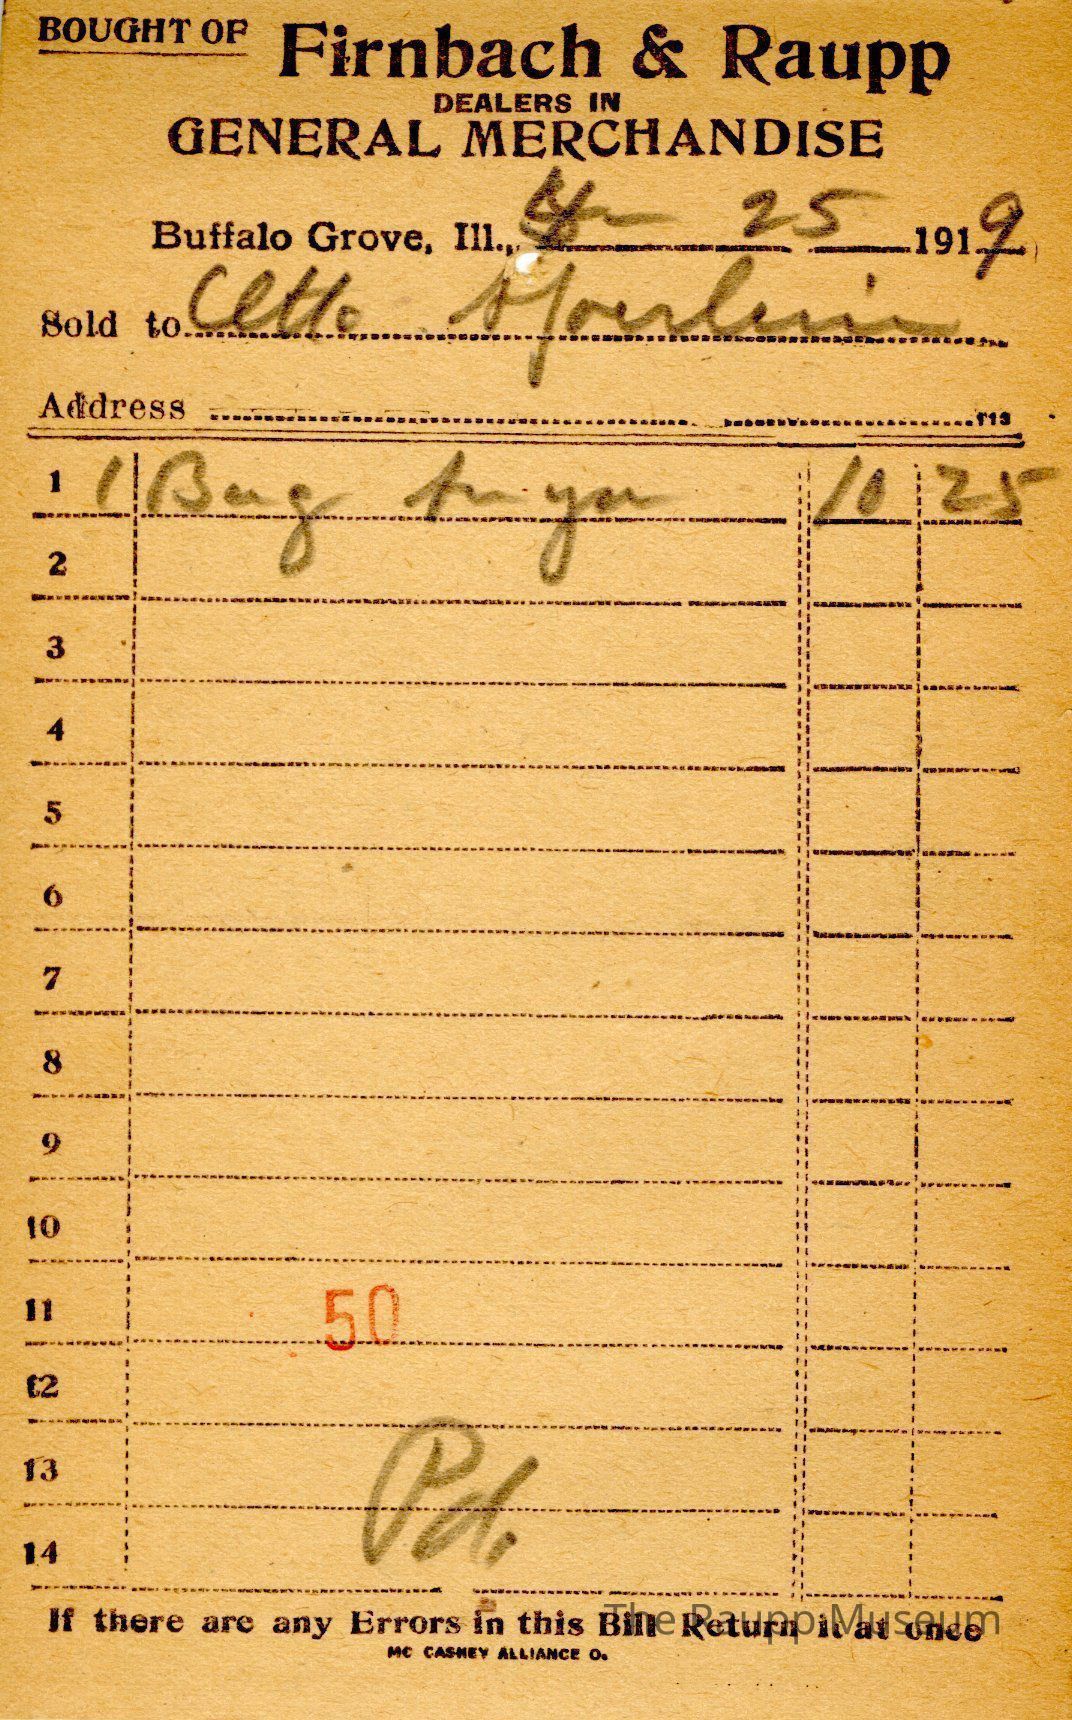 BOUGHT OF Firnbach & Raupp
DEALERS IN
GENERAL MERCHANDISE
Buffalo Grove, Ill., 25 1919
Sold to Otto
Address 113
1 1 Bag 10 25
2
3
4
5
6
7
8
9
10
11 50
12
13 Pd.
14
If there are any Errors in this Bill Return it at once
The Raupp Museum
MC CASKEY ALLIANCE O.